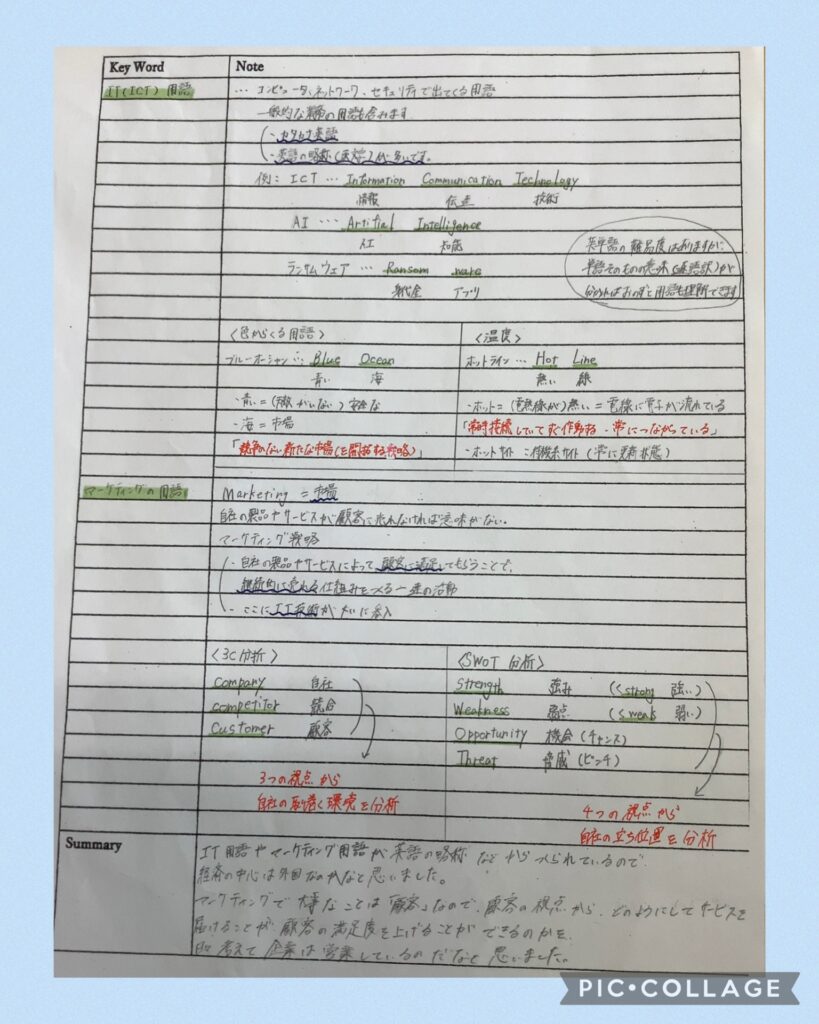 Key Word
Note
IT(ICT) 用語
… コンピュータ、ネットワーク、セキュリティで出てくる用語
一般的な業務の用語も含みます
・カタカナ英語
・英語の略称(英文字)が多いです。
例: ICT … Information Communication Technology
情報 伝達 技術
AI … Artifial Intelligence
人工 知能
ランサムウェア … Ransom ware
身代金 アプリ
英単語の難易度はありますが、
単語そのものの意味(英語訳)が
分かればおのずと用語も理解できます
〈色からくる用語〉
ブルーオーシャン … Blue Ocean
青い 海
・青い = (敵がいない) 安全な
・海 = 市場
「競争のない新たな市場(を開拓する戦略)」
〈温度〉
ホットライン … Hot Line
熱い 線
・ホット = (電熱線が) 熱い = 電線に電子が流れている
「常時接続していてすぐ作動する・常につながっている」
・ホットサイト = 待機系サイト (常に更新状態)
マーケティングの用語
Marketing = 市場
自社の製品やサービスが顧客に売れなければ意味がない。
マーケティング戦略
・自社の製品やサービスによって、顧客に満足してもらうことで、
継続的に売れる仕組みをつくる一連の活動
・ここにIT技術が大いに参入
〈3C分析〉
Company 自社
Competitor 競合
Customer 顧客
3つの視点から
自社の取り巻く環境を分析
〈SWOT 分析〉
Strength 強み (< strong 強い)
Weakness 弱点 (< weak 弱い)
Opportunity 機会 (チャンス)
Threat 脅威 (ピンチ)
4つの視点から
自社の立ち位置を分析
Summary
IT用語やマーケティング用語が英語の略称などからつくられているので、
経済の中心は外国なのかなと思いました。
マーケティングで大事なことは「顧客」なので、顧客の視点から、どのようにしてサービスを
届けることが、顧客の満足度を上げることができるのかを、
日々考えて企業は営業しているのだなと思いました。
PIC•COLLAGE